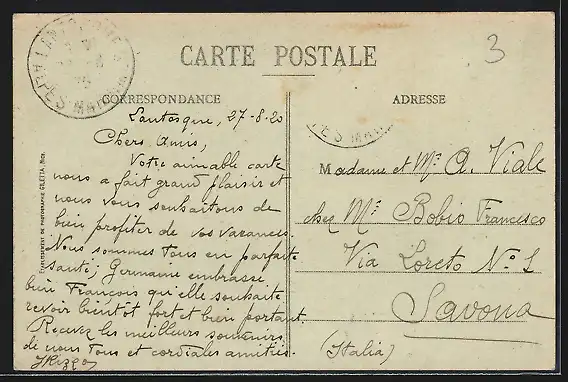 CARTE POSTALE
3
ALPES MAR
CORRESPONDANCE
ADRESSE
Lantosque, 27-8-20
Chers Amis,
Votre aimable carte
nous a fait grand plaisir et
nous vous souhaitons de
bien profiter de vos vacances.
Nous sommes tous en parfaite
santé; Germaine embrasse
bien François qu'elle souhaite
revoir bientôt fort et bien portant.
Recevez les meilleurs souvenirs
de nous tous et cordiales amitiés.
PES MAR
Madame et Mr A. Viale
chez Mr Bobio Francesco
Via Loreto No 1
Savona
(Italia)
PHOTOGRAPHIE GILETTA, Nice.